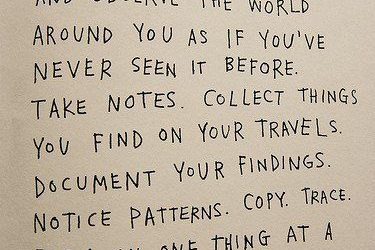 AND OBSERVE THE WORLD
AROUND YOU AS IF YOU'VE
NEVER SEEN IT BEFORE.
TAKE NOTES. COLLECT THINGS
YOU FIND ON YOUR TRAVELS.
DOCUMENT YOUR FINDINGS.
NOTICE PATTERNS. COPY. TRACE.
ONE THING AT A